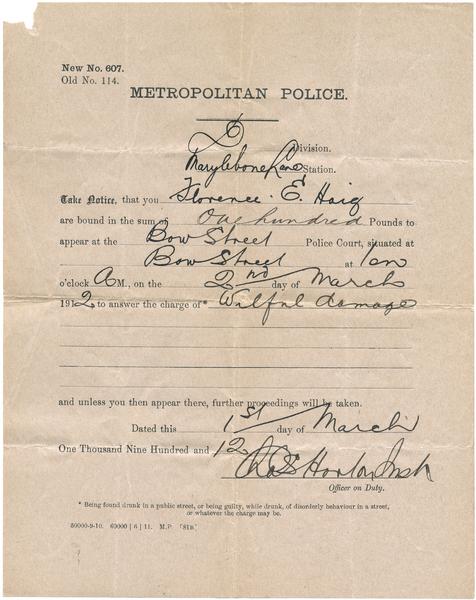 New No. 607.
Old No. 114.
METROPOLITAN POLICE.
D Division.
Marylebone Lane Station.
Take Notice, that you Florence E. Haig
are bound in the sum of One hundred Pounds to
appear at the Bow Street Police Court, situated at
Bow Street at Ten
o'clock A M., on the 2nd day of March
1912, to answer the charge of* Wilful damage
and unless you then appear there, further proceedings will be taken.
Dated this 1st day of March
One Thousand Nine Hundred and 12
Horton Insp
Officer on Duty.
* Being found drunk in a public street, or being guilty, while drunk, of disorderly behaviour in a street,
or whatever the charge may be.
50000-9-10. 60000 | 6 | 11. M.P.